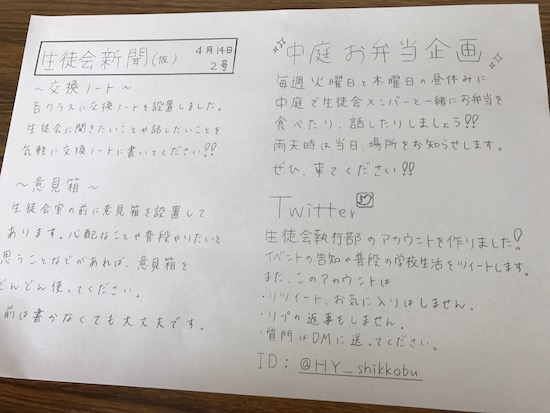 生徒会新聞(仮)
4月14日
2号
～交換ノート～
各クラスに交換ノートを設置しました。
生徒会に聞きたいことや話したいことを
気軽に交換ノートに書いてください!!
～意見箱～
生徒会室の前に意見箱を設置して
あります。心配なことや普段やりたいと
思うことなどがあれば、意見箱を
どんどん使ってください。
前は書かなくても大丈夫です。
中庭お弁当企画
毎週火曜日と木曜日の昼休みに
中庭で生徒会メンバーと一緒にお弁当を
食べたり、話したりしましょう!!
雨天時は当日、場所をお知らせします。
ぜひ、来てください!!
Twitter
生徒会執行部のアカウントを作りました!
イベントの告知や普段の学校生活をツイートします。
また、このアカウントは
・リツイート、お気に入りはしません。
・リプの返事もしません。
・質問はDMに送ってください。
ID: @HY_shikkobu